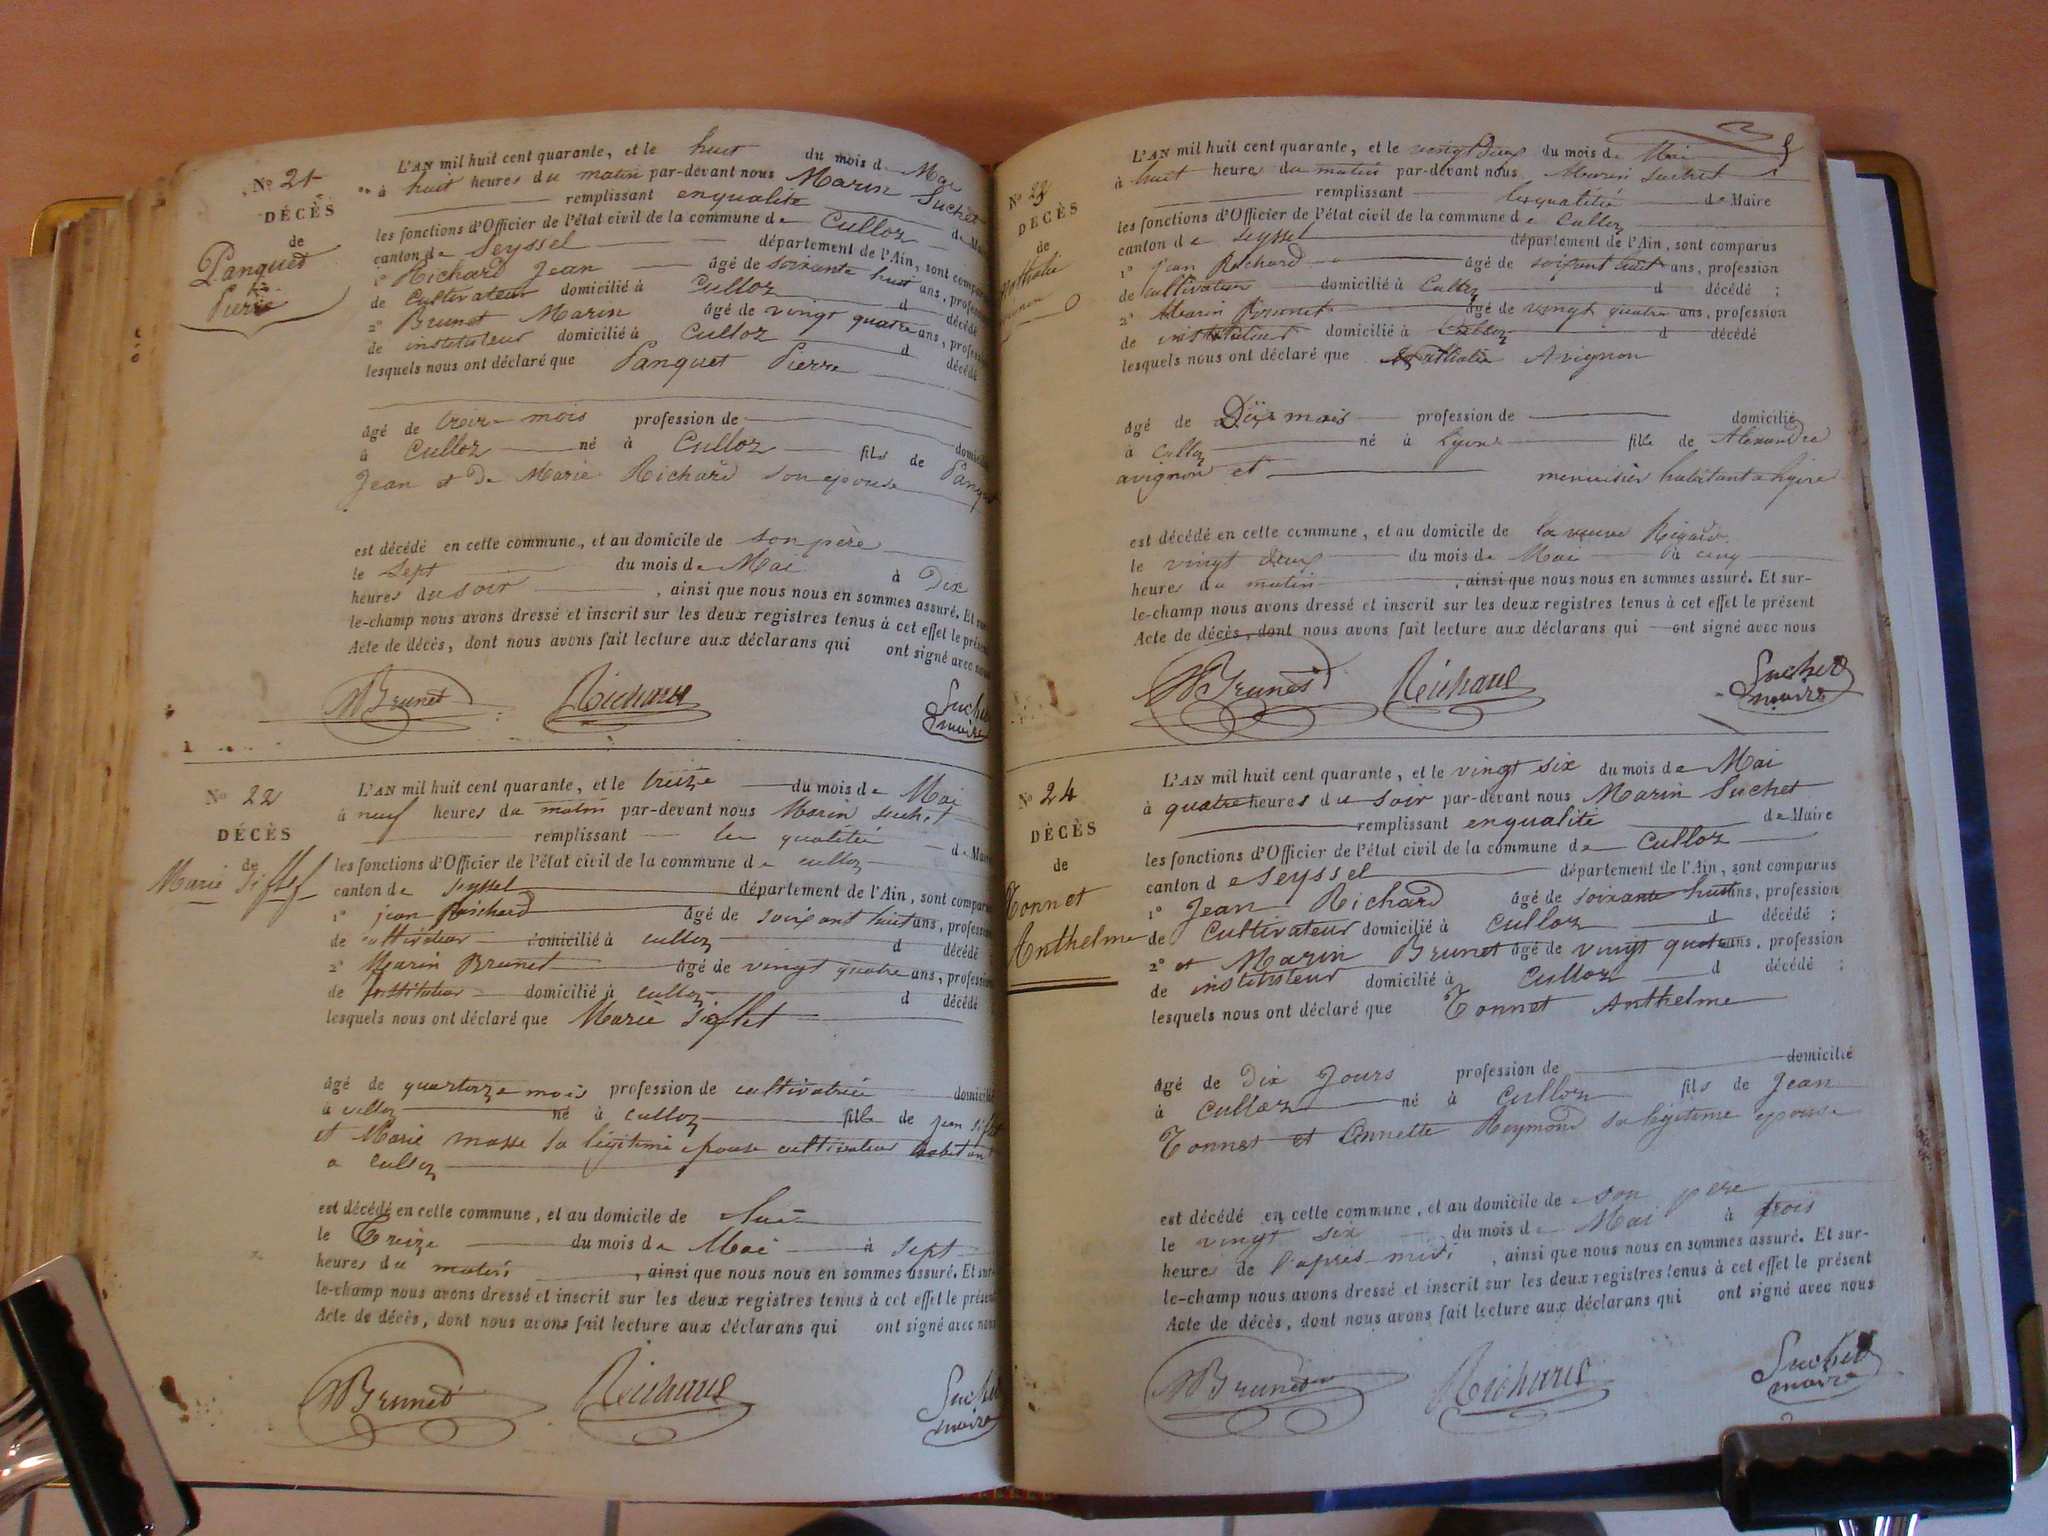 N° 21
DÉCÈS
de
Panquet
Pierre
L'AN mil huit cent quarante, et le huit du mois de Mai
à huit heures du matin par-devant nous Marin Suchet
remplissant en qualité de Maire
les fonctions d'Officier de l'état civil de la commune de Culloz
canton de Seyssel département de l'Ain, sont comparus
1° Richard Jean âgé de soixante huit ans, profession
de Cultivateur domicilié à Culloz d décédé
2° Brunet Marin âgé de vingt quatre ans, profession
de instituteur domicilié à Culloz d décédé
lesquels nous ont déclaré que Panquet Pierre
âgé de trois mois profession de domicilié
à Culloz né à Culloz fils de Panquet
Jean et de Marie Richard son epouse
est décédé en cette commune, et au domicile de son père
le sept du mois de Mai à Dix
heures du soir, ainsi que nous nous en sommes assuré. Et sur-
le-champ nous avons dressé et inscrit sur les deux registres tenus à cet effet le présent
Acte de décès, dont nous avons fait lecture aux déclarans qui ont signé avec nous
MBrunet Richard Suchet
maire
N° 22
DÉCÈS
de
Marie Siflet
L'AN mil huit cent quarante, et le treize du mois de Mai
à neuf heures du matin par-devant nous Marin Suchet
remplissant les qualitié de Maire
les fonctions d'Officier de l'état civil de la commune de culloz
canton de Seyssel département de l'Ain, sont comparus
1° jean Richard âgé de soixant huit ans, profession
de cultivateur domicilié à culloz d décédé
2° Marin Brunet âgé de vingt quatre ans, profession
de instituteur domicilié à culloz d décédé
lesquels nous ont déclaré que Marie Siflet
âgé de quartorze mois profession de cultivatrice domicilié
à culloz né à culloz fille de jean Siflet
et Marie masse sa légitime epouse cultivateur habitant
a culloz
est décédé en cette commune, et au domicile de
le Treize du mois de Mai à sept
heures du matin, ainsi que nous nous en sommes assuré. Et sur-
le-champ nous avons dressé et inscrit sur les deux registres tenus à cet effet le présent
Acte de décès, dont nous avons fait lecture aux déclarans qui ont signé avec nous
MBrunet Richard Suchet
maire
N° 23
DÉCÈS
de
Nathalie
L'AN mil huit cent quarante, et le vingt deux du mois de Mai
à huit heures du matin par-devant nous Marin Suchet
remplissant les qualitié de Maire
les fonctions d'Officier de l'état civil de la commune de Culloz
canton de Seyssel département de l'Ain, sont comparus
1° Jean Richard âgé de soixant huit ans, profession
de cultivateur domicilié à Culloz d décédé ;
2° Marin Brunet âgé de vingt quatre ans, profession
de instituteur domicilié à Culloz d décédé
lesquels nous ont déclaré que Nathalie Avignon
âgé de Dix mois profession de domicilié
à Culloz né à Lyon fille de Alexandre
avignon et menuisier habitant a
est décédé en cette commune, et au domicile de la veuve
le vingt deux du mois de Mai à cinq
heures du matin, ainsi que nous nous en sommes assuré. Et sur-
le-champ nous avons dressé et inscrit sur les deux registres tenus à cet effet le présent
Acte de décès, dont nous avons fait lecture aux déclarans qui ont signé avec nous
MBrunet Richard Suchet
maire
N° 24
DÉCÈS
de
Tonnet
Anthelme
L'AN mil huit cent quarante, et le vingt six du mois de Mai
à quatre heures du soir par-devant nous Marin Suchet
remplissant en qualité de Maire
les fonctions d'Officier de l'état civil de la commune de Culloz
canton de Seyssel département de l'Ain, sont comparus
1° Jean Richard âgé de soixante huit ans, profession
de Cultivateur domicilié à Culloz d décédé ;
2° et Marin Brunet âgé de vingt quatre ans, profession
de instituteur domicilié à Culloz d décédé ;
lesquels nous ont déclaré que Tonnet Anthelme
âgé de Dix Jours profession de domicilié
à Culloz né à Culloz fils de Jean
Tonnet et Annette Reymond sa légitime epouse
est décédé en cette commune, et au domicile de son père
le vingt six du mois de Mai à trois
heures de l'apres-midi, ainsi que nous nous en sommes assuré. Et sur-
le-champ nous avons dressé et inscrit sur les deux registres tenus à cet effet le présent
Acte de décès, dont nous avons fait lecture aux déclarans qui ont signé avec nous
MBrunet Richard Suchet
maire